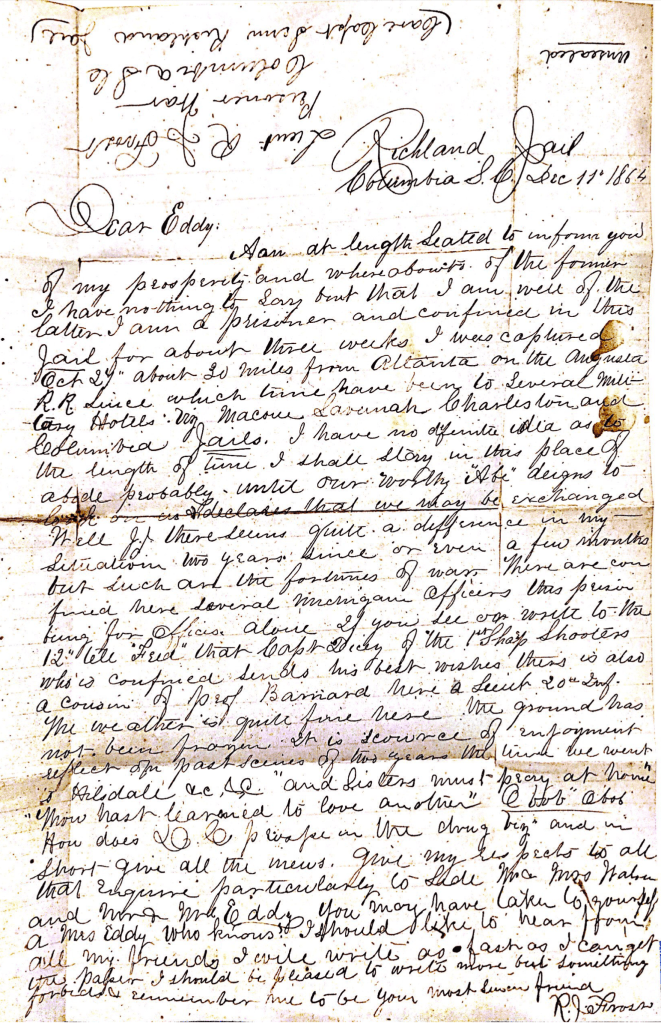 (Care Capt Senn Richland Jail)
Columbia S C
Prisoner War
Lieut R J Frost
Unsealed
Richland Jail
Columbia S. C. Dec 11" 1864
Dear Eddy:
Aam at length seated to inform you
of my prosperity and whereabouts. of the former
I have nothing to say but that I am well of the
latter I am a prisoner and confined in this
Jail for about three weeks I was captured
Oct 27" about 30 miles from Atlanta on the Augusta
R. R. Since which time have been to several Mili
tary Hotels. viz Macone Savanah Charleston and
Columbia Jails. I have no difinite idea as to
the length of time I shall stay in this place of
abode probably until our worthy "Abe" deigns to
look on us & declares that we may be exchanged
Well J. there seems quite a difference in my
situation two years since or even a few months
but such are the fortunes of war There are con
fined here several Michigan Officers this prison
being for Officers alone If you see or write to the
12" tell "Fred" that Capt of the 1st Sharp Shooters
who is confined sends his best wishes there is also
a cousin of Prof Barnard here a Lieut 20th Inf.
The weather is quite fine here the ground has
not been frozen It is scource of enjoyment
reflect on past scenes of two years the time we went
to Hilsdale &c &c "and Sisters must pecry at home"
"Thou hast learned to love another" Obob" Obob
How does D. C. in the drug biz" and in
short give all the news. Give my respects to all
that enquire particularly to Sade Mc Mrs
and Mr & Mrs Eddy. you may have taken to yourself
a Mrs Eddy who knows? I should like to hear from
all my friends I will write as fast as I can get
the paper I should be pleased to write more but something
forbids & remember me to be your most friend
R. J. Frost